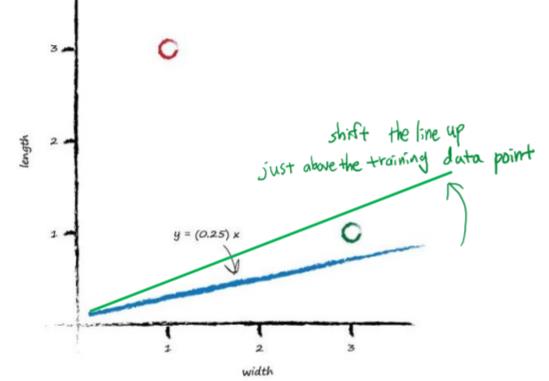 3
length
2
shift the line up
just above the training data point
1
y = (0.25) x
1 2 3
width